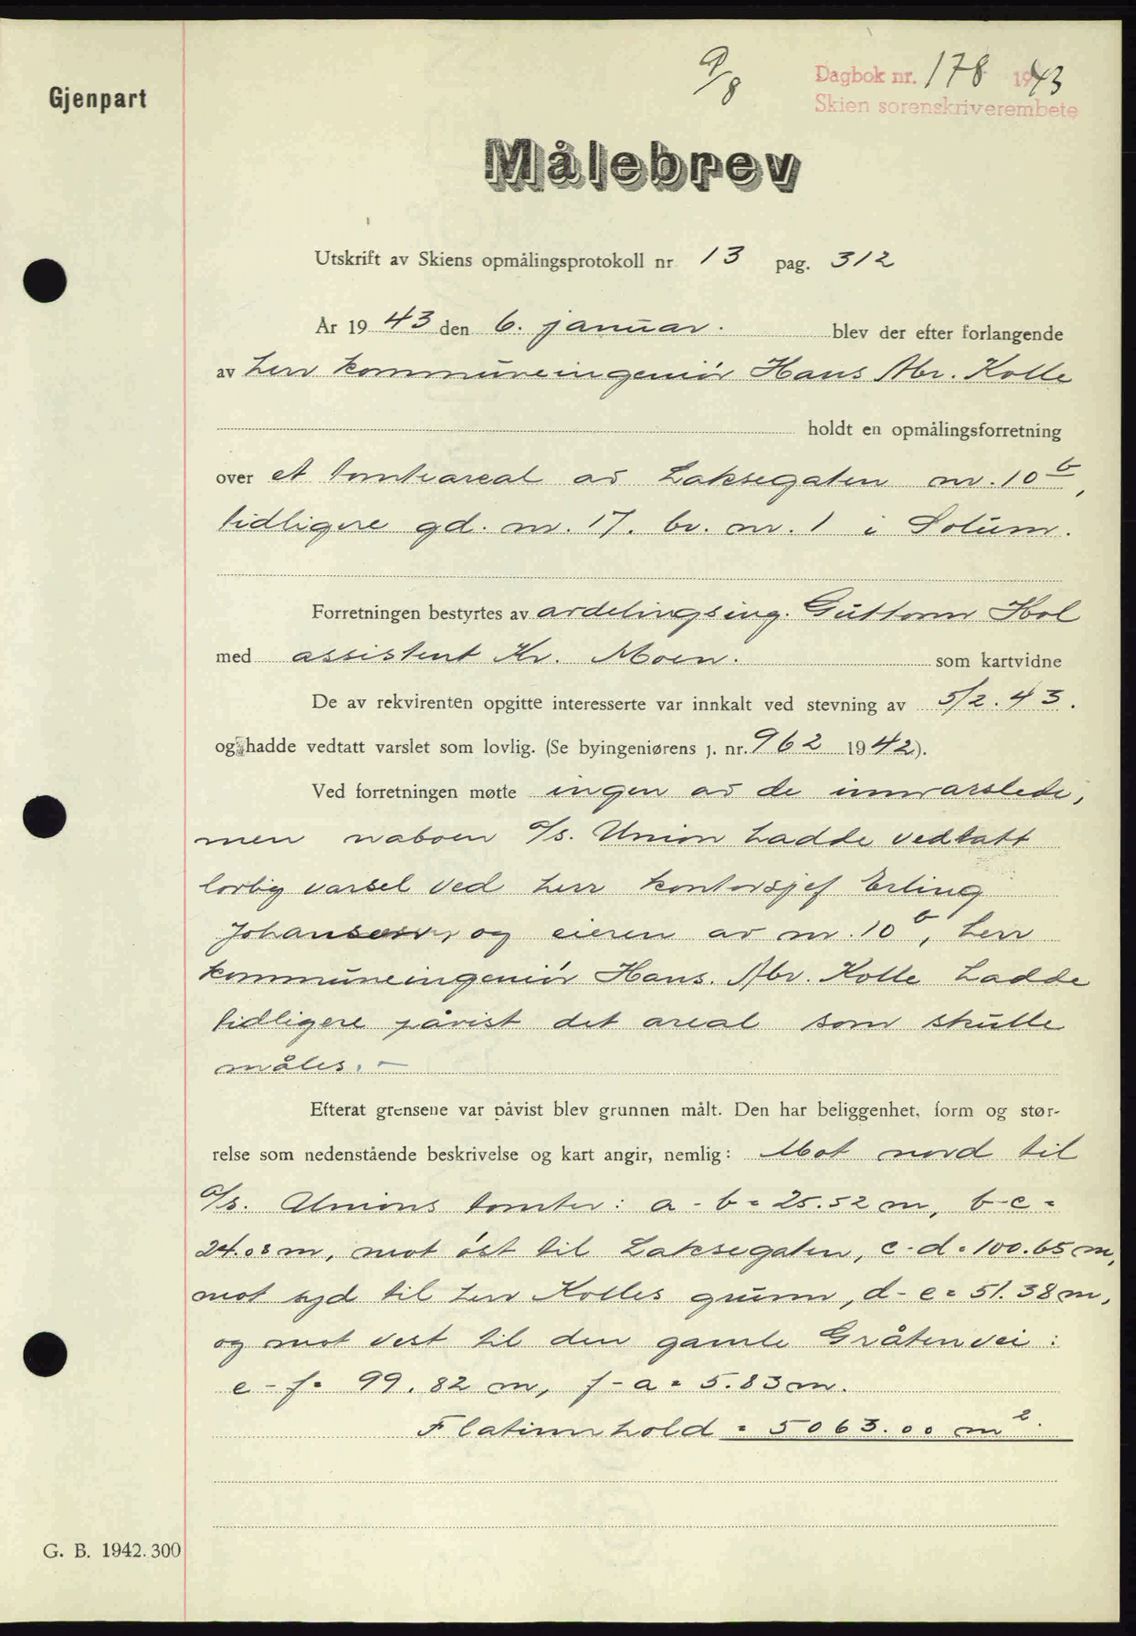 9/8
Dagbok nr. 178 1943
Skien sorenskriverembete
Gjenpart
Målebrev
Utskrift av Skiens opmålingsprotokoll nr 13 pag. 312
År 1943 den 6. januar. blev der efter forlangende
av herr kommuneingeniør Hans Abr. Kolle
holdt en opmålingsforretning
over et tomteareal av Laksegaten nr. 10b,
tidligere gd. nr. 17. br. nr. 1 i Solum.
Forretningen bestyrtes av avdelingsing. Guttorm Hol
med assistent Kr. Moen. som kartvidne
De av rekvirenten opgitte interesserte var innkalt ved stevning av 5/2. 43.
og hadde vedtatt varslet som lovlig. (Se byingeniørens j. nr. 962 1942).
Ved forretningen møtte ingen av de innvarslede,
men naboen A/s. Union hadde vedtatt
lovlig varsel ved herr kontorsjef Erling
Johansen, og eieren av nr. 10b, herr
kommuneingeniør Hans. Abr. Kolle hadde
tidligere påvist det areal som skulle
måles. –
Efterat grensene var påvist blev grunnen målt. Den har beliggenhet, form og stør-
relse som nedenstående beskrivelse og kart angir, nemlig: Mot nord til
A/s. Unions tomter: a - b = 25.52 m, b-c =
24.08 m, mot øst til Laksegaten, c-d = 100.65 m,
mot syd til herr Kolles grunn, d-e = 51.38 m,
og mot vest til den gamle Gråtenvei :
e - f = 99.82 m, f-a = 5.83 m.
Flatinnhold = 5063.00 m².
G. B. 1942. 300